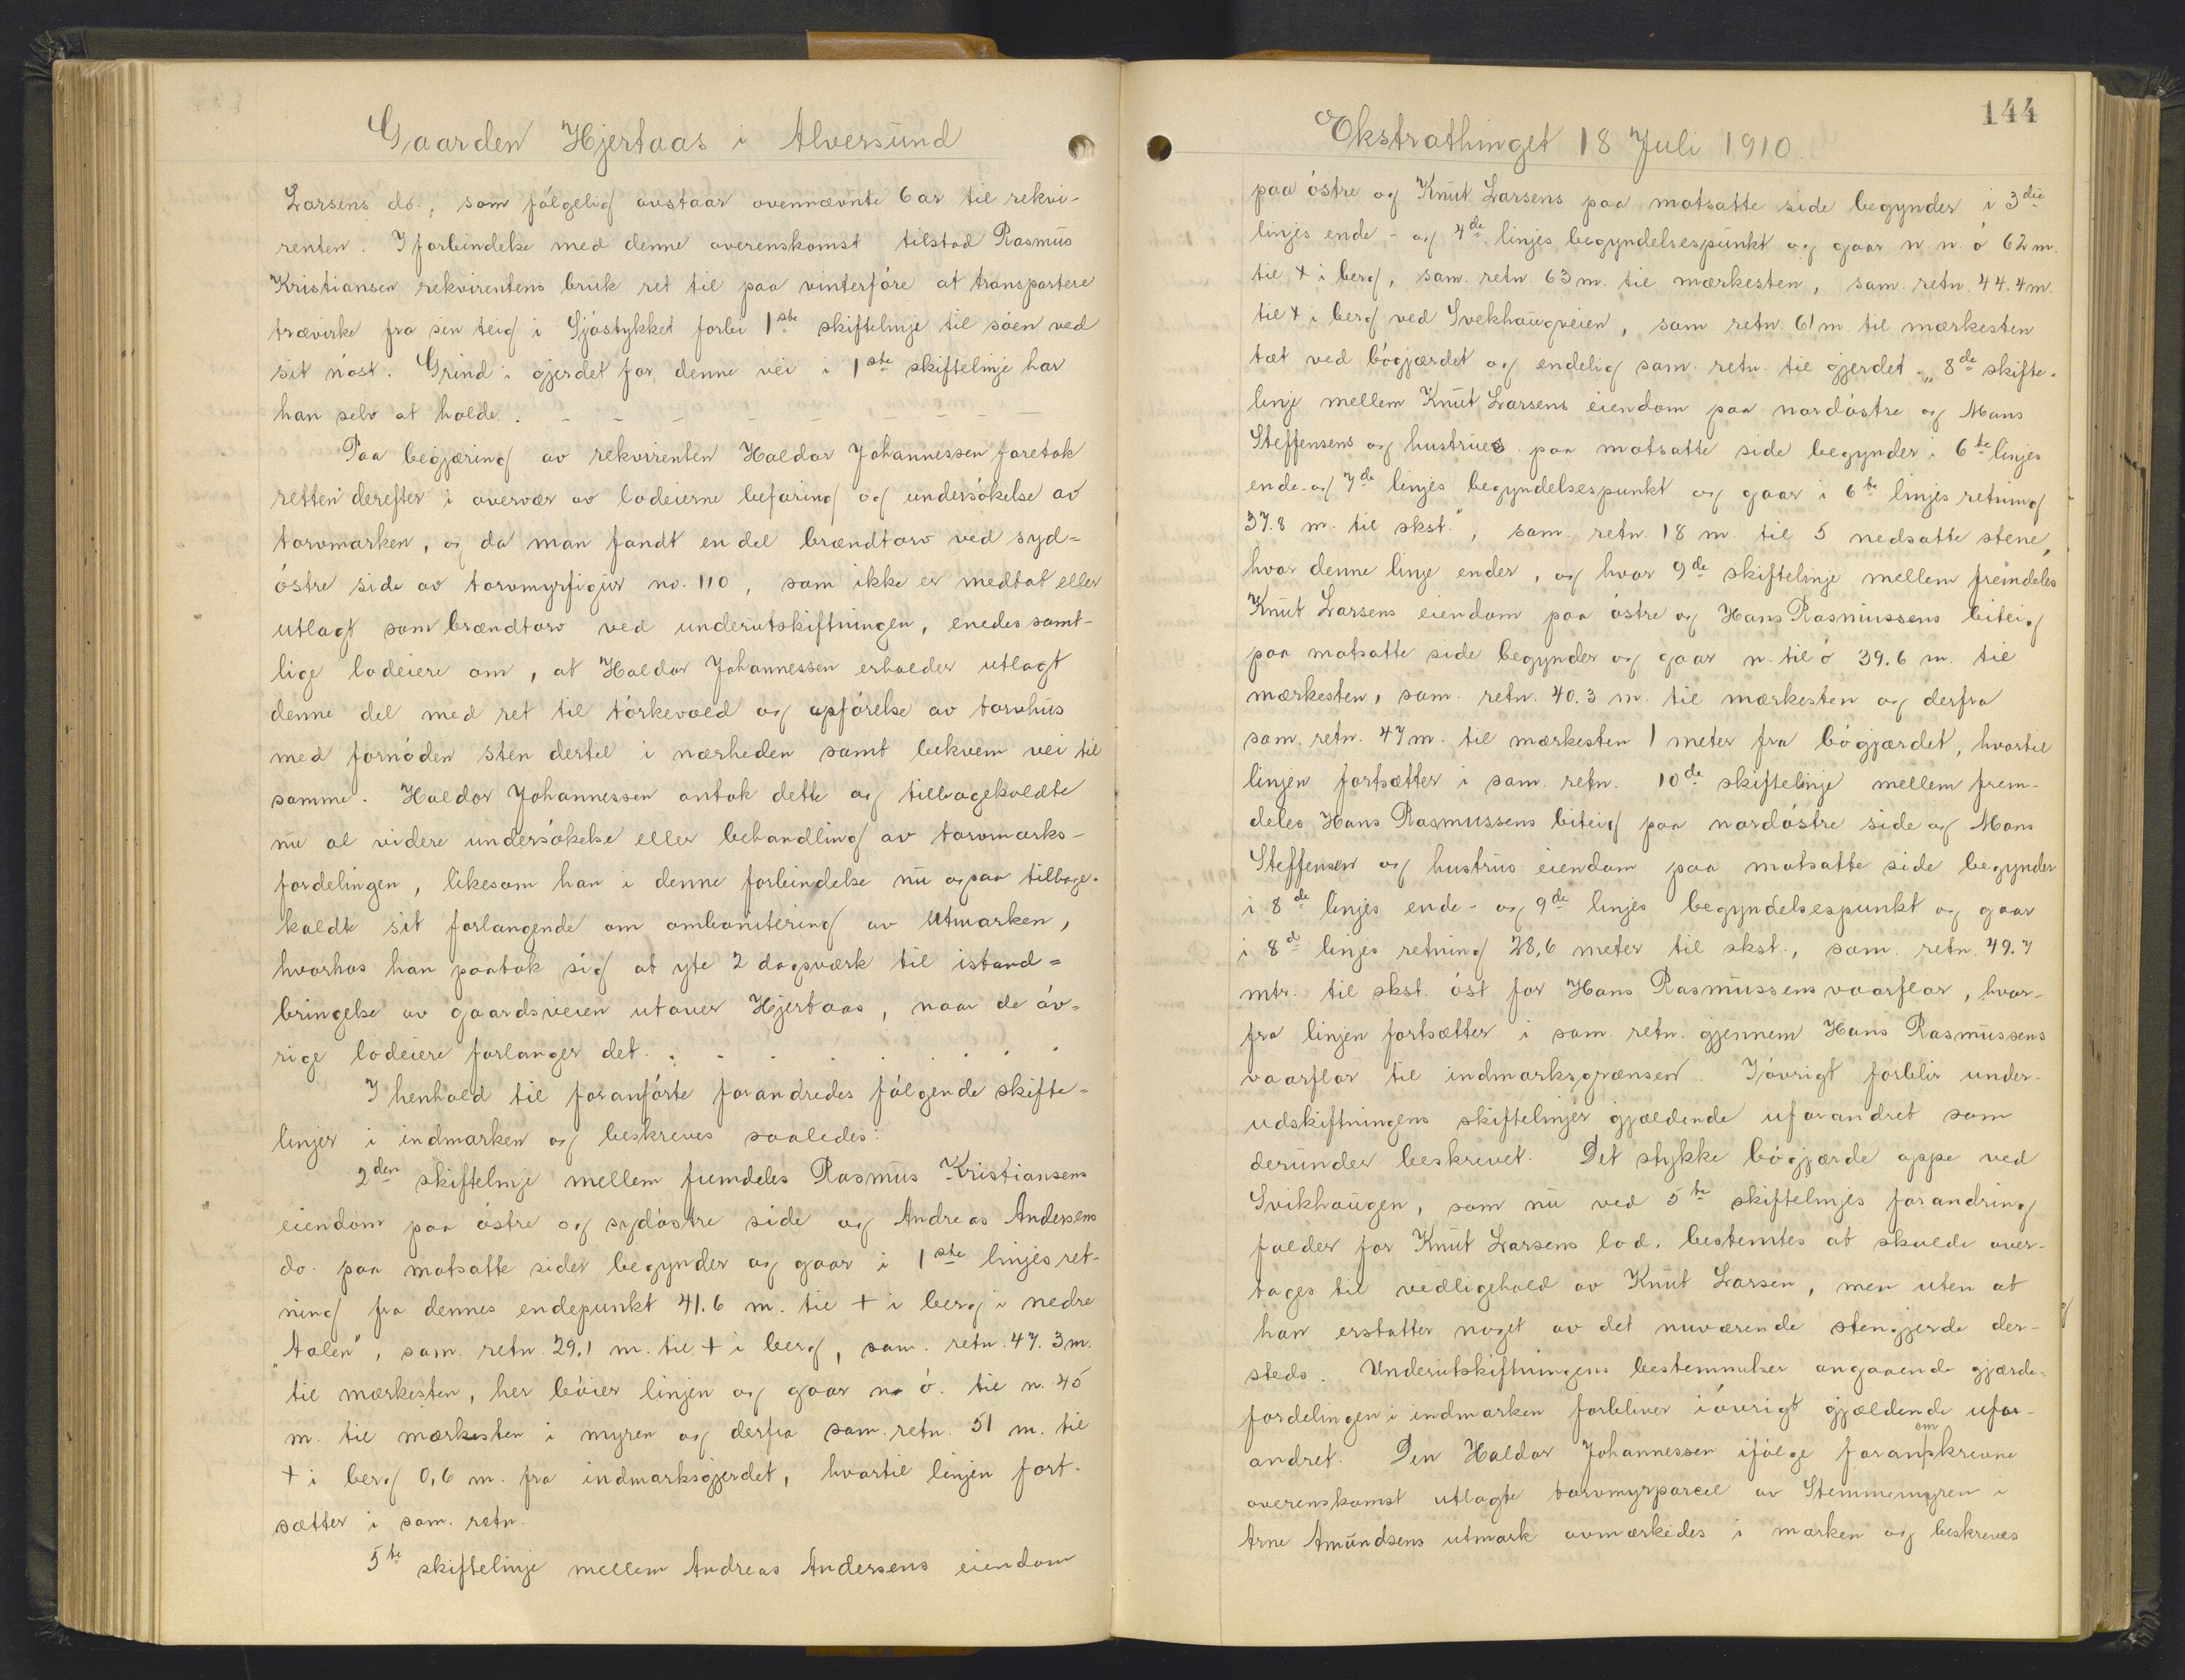 Gaarden Hjertaas i Alversund
Larsens do., som følgelig avstaar ovennævnte 6 ar til rekvi-
renten. I forbindelse med denne overenskomst tilstod Rasmus
Kristiansen rekvirentens bruk ret til paa vinterføre at transportere
trævirke fra sin teig i Sjøstykket forbi 1ste skiftelinje til søen ved
sit nøst. Grind i gjerdet for denne vei i 1ste skiftelinje har
han selv at holde.
Paa begjæring av rekvirenten Haldor Johannessen foretok
retten derefter i overvær av lodeierne befaring og undersøkelse av
torvmarken, og da man fandt en del brændtorv ved syd-
østre side av torvmyrfigur no. 110, som ikke er medtat eller
utlagt som brændtorv ved underutskiftningen, enedes samt-
lige lodeiere om, at Haldor Johannessen erholder utlagt
denne del med ret til tørkevold og opførelse av torvhus
med fornøden sten dertil i nærheden samt bekvem vei til
samme. Haldor Johannessen antok dette og tilbakekaldte
nu al videre undersøkelse eller behandling av torvmarks-
fordelingen, likesom han i denne forbindelse nu ogsaa tilbage-
kaldte sit forlangende om ombonitering av utmarken,
hvorhos han paatok sig at yte 2 dagsværk til istand-
bringelse av gaardsveien utover Hjertaas, naar de øv-
rige lodeiere forlanger det.
I henhold til foranførte forandredes følgende skifte-
linjer i indmarken og beskreves saaledes:
2den skiftelinje mellem fremdeles Rasmus Kristiansens
eiendom paa østre og sydøstre side og Andreas Andersens
do. paa motsatte sider begynder og gaar i 1ste linjes ret-
ning fra dennes endepunkt 41.6 m. til + i berg i nedre
"Aalen", sam. retn. 29,1 m. til + i berg, sam. retn. 47.3 m.
til mærkesten, her bøier linjen og gaar n. ø. til n. 45
m. til mærkesten i myren og derfra sam. retn. 51 m. til
+ i berg 0,6 m. fra indmarksgjerdet, hvortil linjen fort-
sætter i sam. retn.
5te skiftelinje mellem Andreas Andersens eiendom
144
Ekstrathinget 18 Juli 1910.
paa østre og Knut Larsens paa motsatte side begynder i 3die
linjes ende- og 4de linjes begyndelsespunkt og gaar n. n. ø 62 m.
til + i berg, sam. retn. 63 m. til mærkesten, sam. retn. 44.4 m.
til + i berg ved Svekhaugveien, sam. retn. 61 m. til mærkesten
tæt ved bøgjærdet og endelig sam. retn. til gjerdet. „8de skifte-
linje mellem Knut Larsens eiendom paa nordøstre og Mons
Steffensens og hustrues paa motsatte side begynder i 6te linjes
ende- og 7de linjes begyndelsespunkt og gaar i 6te linjes retning
37.8 m. til skst.", sam retn. 18 m. til 5 nedsatte stene,
hvor denne linje ender, og hvor 9de skiftelinje mellem fremdeles
Knut Larsens eiendom paa østre og Hans Rasmussens biteig
paa motsatte side begynder og gaar n. til ø 39.6 m. til
mærkesten, sam. retn. 40.3 m. til mærkesten og derfra
sam. retn. 47 m. til mærkesten 1 meter fra bøgjærdet, hvortil
linjen fortsætter i sam. retn. 10de skiftelinje mellem frem-
deles Hans Rasmussens biteig paa nordøstre side og Mons
Steffensen og hustrus eiendom paa motsatte side begynder
i 8de linjes ende- og 9de linjes begyndelsespunkt og gaar
i 8d linjes retning 28,6 meter til skst., sam. retn. 49.7
mtr. til skst. øst for Hans Rasmussens vaarflor, hvor-
fra linjen fortsætter i sam. retn. gjennem Hans Rasmussens
vaarflor til indmarksgrænsen. Iøvrigt forblir under-
udskiftningens skiftelinjer gjældende uforandret som
derunder beskrevet. Det stykke bøgjærde oppe ved
Svikhaugen, som nu ved 5te skiftelinjes forandring
falder for Knut Larsens lod, bestemtes at skulde over-
tages til vedligehold av Knut Larsen, men uten at
han erstatter noget av det nuværende stengjerde der-
steds. Underutskiftningens bestemmelser angaaende gjærde-
fordelingen i indmarken forbliver iøvrigt gjældende ufor-
andret. Den Haldor Johannessen ifølge foranomskrevne
overenskomst utlagte torvmyrparcel av Stemmemyren i
Arne Amundsens utmark avmærkedes i marken og beskreves